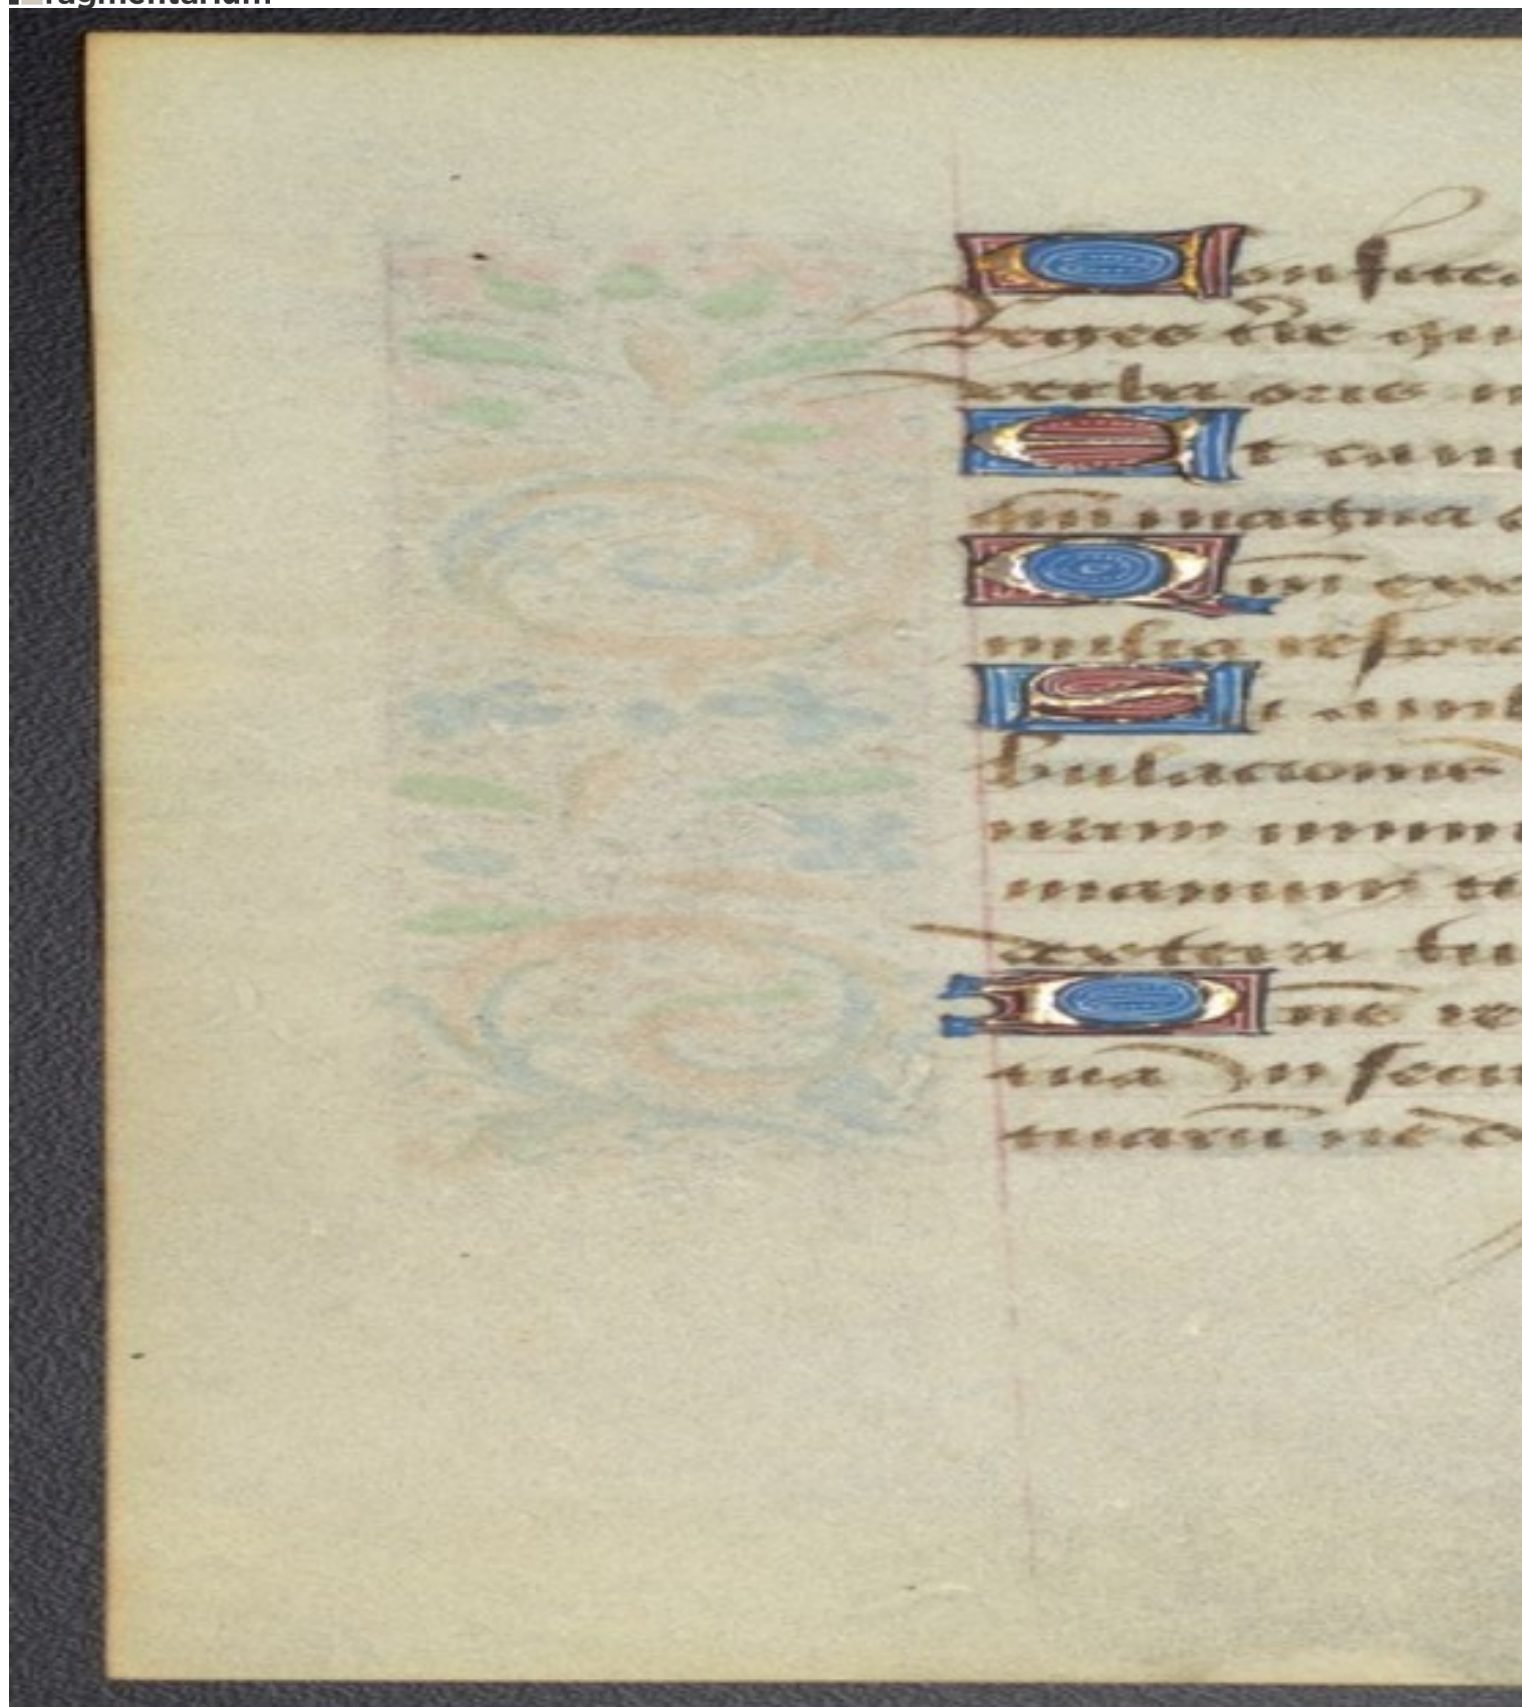 fragmentarium
Confitea
reges tr̄e qui
verba oris
Et cant
qm̄ magna
Qm̄ exc
milia respic
Si amb
bulacionis
iram inimi
manum
dextera tu
Dn̄s re
tua In secu
tuarū ne d